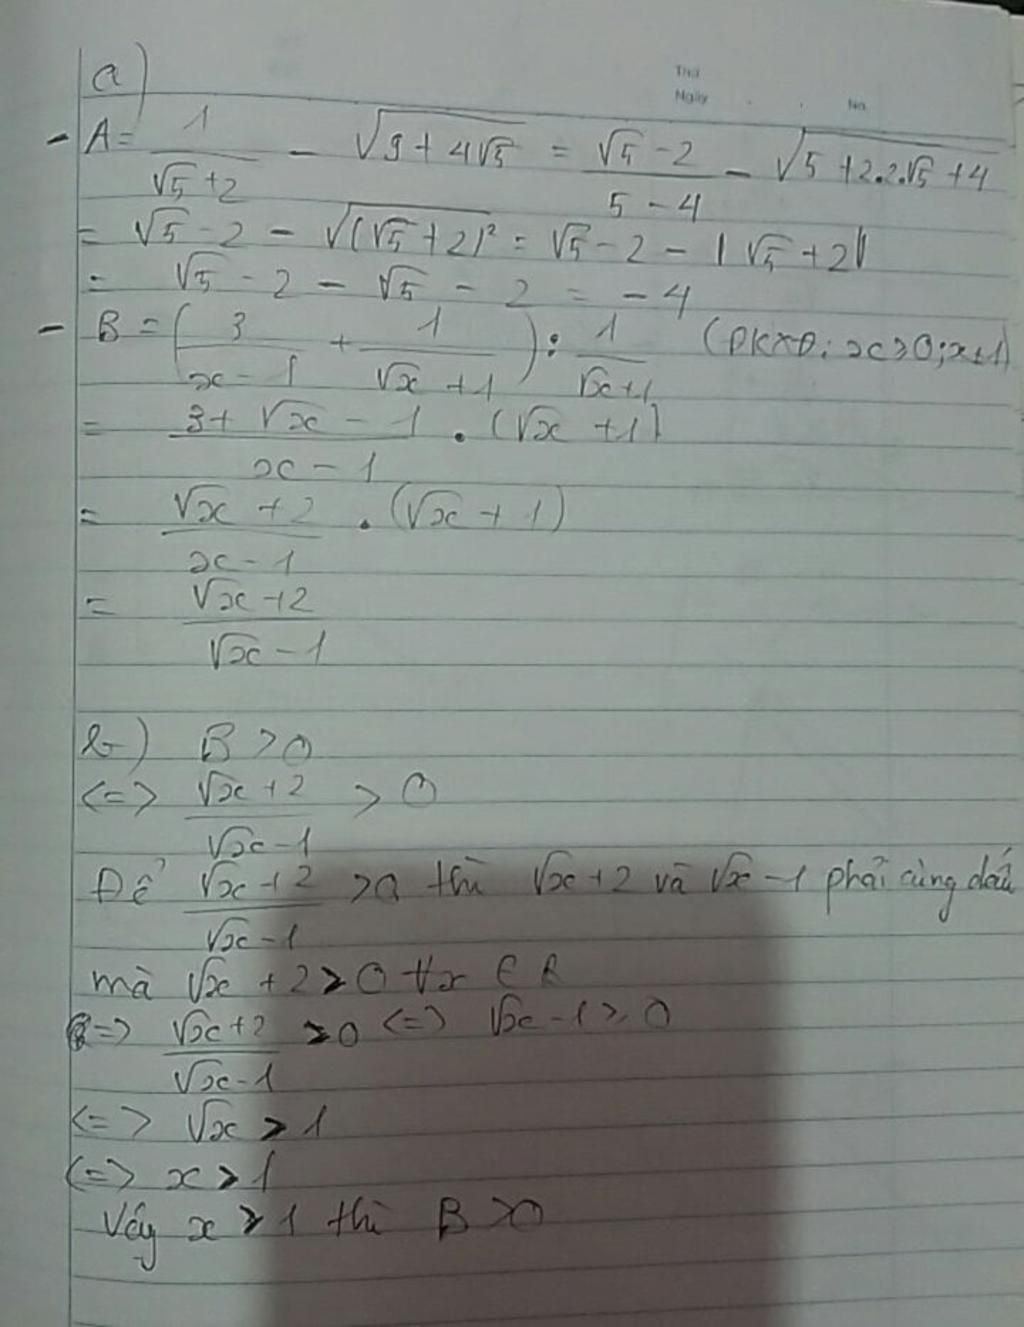 a)
Thứ
Ngày . . No.
- A = 1/(√5 + 2) - √(9 + 4√5) = (√5 - 2)/(5 - 4) - √(5 + 2.2.√5 + 4)
= √5 - 2 - √((√5 + 2)² = √5 - 2 - |√5 + 2|
= √5 - 2 - √5 - 2 = -4
- B = (3/(x - 1) + 1/(√x + 1)) : 1/(√x + 1) (ĐKXĐ: x ≥ 0; x ≠ 1)
= (3 + √x - 1)/(x - 1) . (√x + 1)
= (√x + 2)/(x - 1) . (√x + 1)
= (√x + 2)/(√x - 1)
b) B > 0
<=> (√x + 2)/(√x - 1) > 0
Để (√x + 2)/(√x - 1) > 0 thì √x + 2 và √x - 1 phải cùng dấu
mà √x + 2 > 0 ∀x ∈ R
=> (√x + 2)/(√x - 1) > 0 <=> √x - 1 > 0
<=> √x > 1
<=> x > 1
Vậy x > 1 thì B > 0